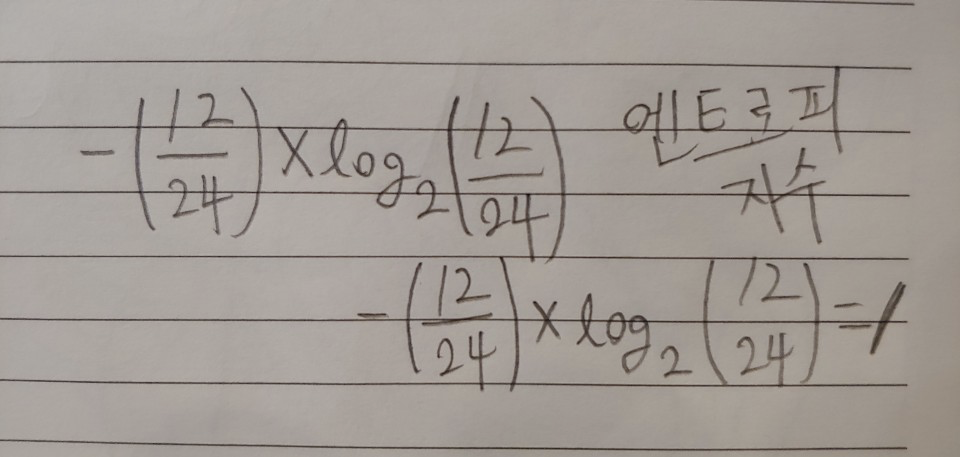 -(12/24)×log₂(12/24) 엔트로피
지수
-(12/24)×log₂(12/24)=1